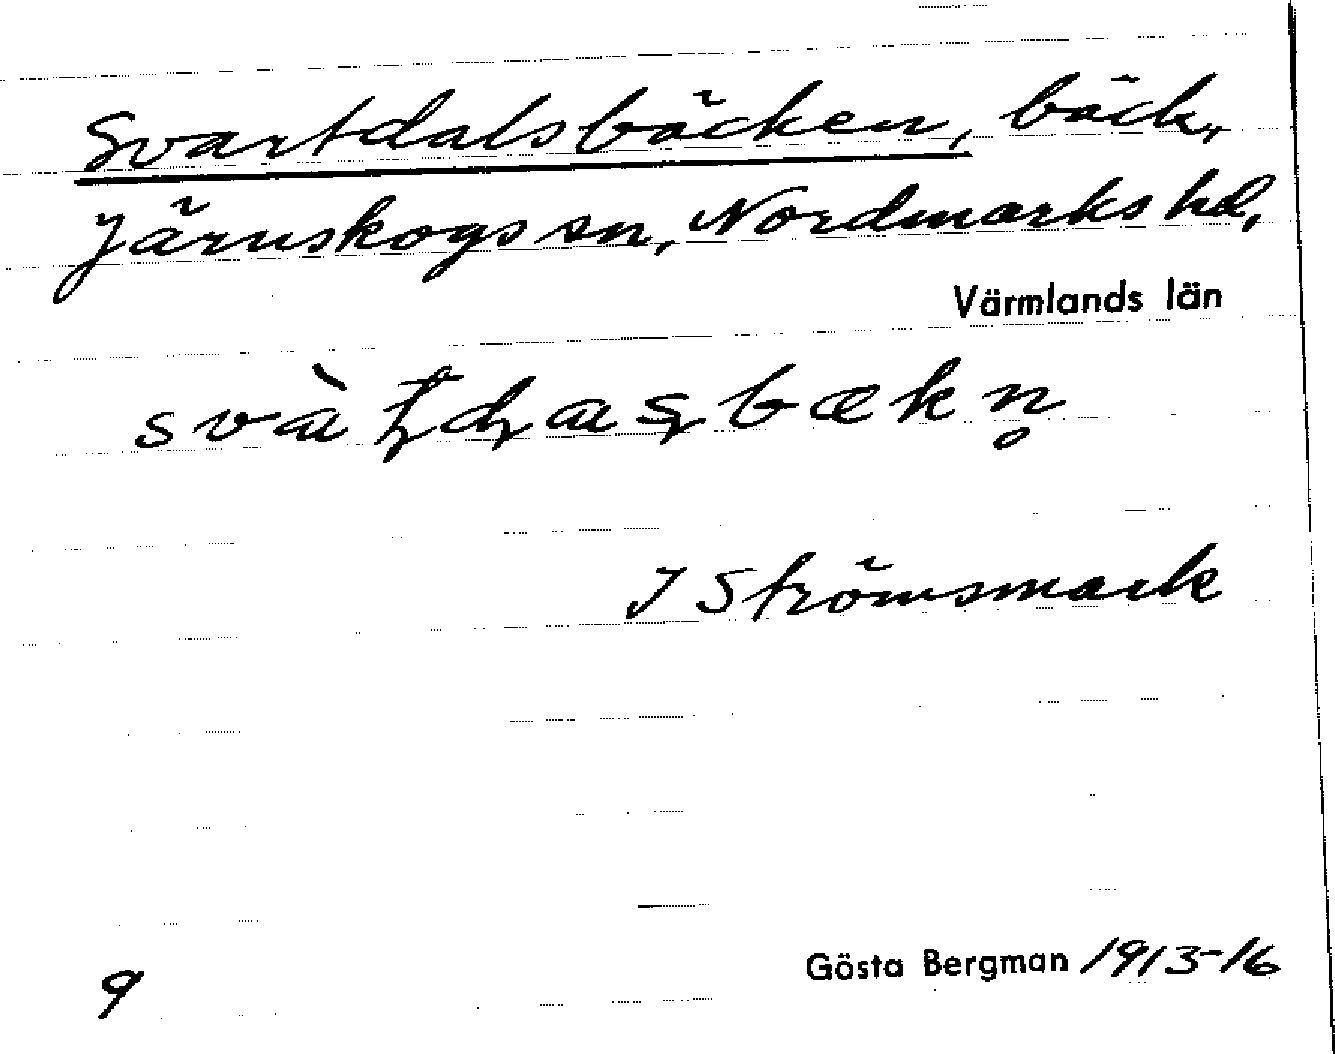 Svartdalsbäcken, bäck,
Järnskogs sn, Nordmarks hd,
Värmlands län
I Strömsmark
9
Gösta Bergman 1913-16